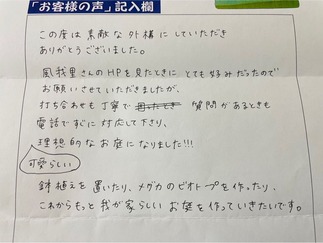 「お客様の声」記入欄
この度は素敵な外構にしていただき
ありがとうございました。
風我里さんのHPを見たときに とても好みだったので
お願いさせていただきましたが、
打ち合わせも丁寧で 質問があるときも
電話ですぐに対応して下さり、
理想的なお庭になりました!!!
可愛らしい
鉢植えを置いたり、メダカのビオトープを作ったり、
これからもっと我が家らしいお庭を作っていきたいです。